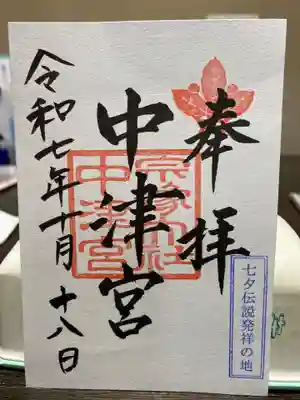 奉拝
中津宮
令和七年十月十八日
宗像大社
中津宮
七夕伝説発祥の地